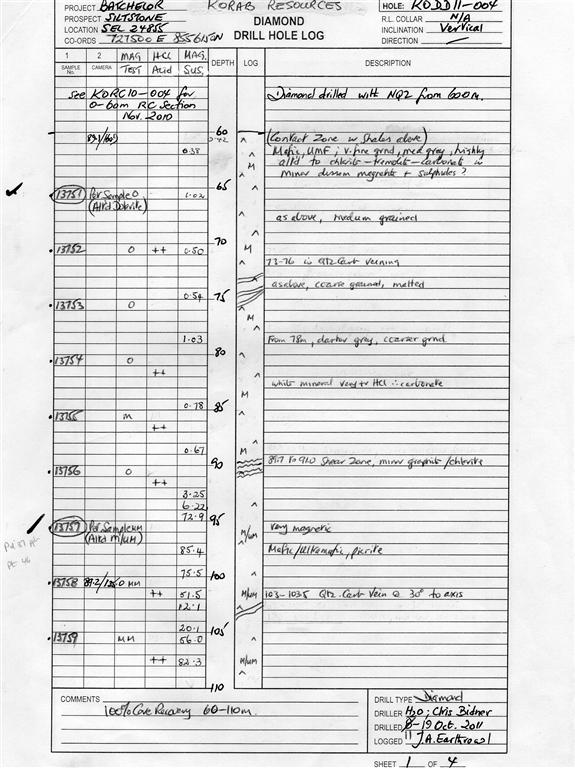 PROJECT BATCHELOR KORAB RESOURCES HOLE: KODD11-004
PROSPECT SILTSTONE DIAMOND R.L. COLLAR N/A
LOCATION SEL 24855 DRILL HOLE LOG INCLINATION Vertical
CO-ORDS 727500E DIRECTION —
1 2 MAG HCl MAG.
SAMPLE No. CAMERA TEST Acid SUS. DEPTH LOG DESCRIPTION
See KORC10-004 for Diamond drilled with NQ2 from 60.0m.
0-60m RC Section
Nov. 2010
60
(Contact Zone w Shales above)
0.38 Mafic, UMF; v. fine grnd, med gray, highly
M alt'd to chlorite-tremolite-carbonate w
minor dissem magnetite + sulphides?
65
13751 Pet Sample 0 1.02
(Alt'd Dolerite)
as above, medium grained
70
13752 0 ++ 0.50 M
73-76 is QTZ Carb veining
as above, coarse grained, melted
0.54 75
13753 0
M
1.03 From 78m, darker gray, coarser grnd
80
13754 0
++
white mineral very + HCl ∴ carbonate
M
0.78 85
13755 M
++
0.67 M
90 89.7 to 91.0 Shear Zone, minor graphite/chlorite
13756 0
++
3.25
6.22
72.9 95
13757 Pet Sample MM Very magnetic
(Alt'd M/UM) M/UM
85.4 Mafic/Ultramafic, picrite
75.5 100
13758 MM
++ 51.5 M/UM 103-103.5 Qtz. Carb Vein @ 30° to axis
12.1
20.1 105
13759 MM 56.0
++ 82.3 M/UM
110
COMMENTS 100% Core Recovery 60-110m.
DRILL TYPE Diamond
DRILLER H2O; Chris Bidner
DRILLED 8-19 Oct. 2011
LOGGED J.A. Earthrowl
SHEET 1 OF 4